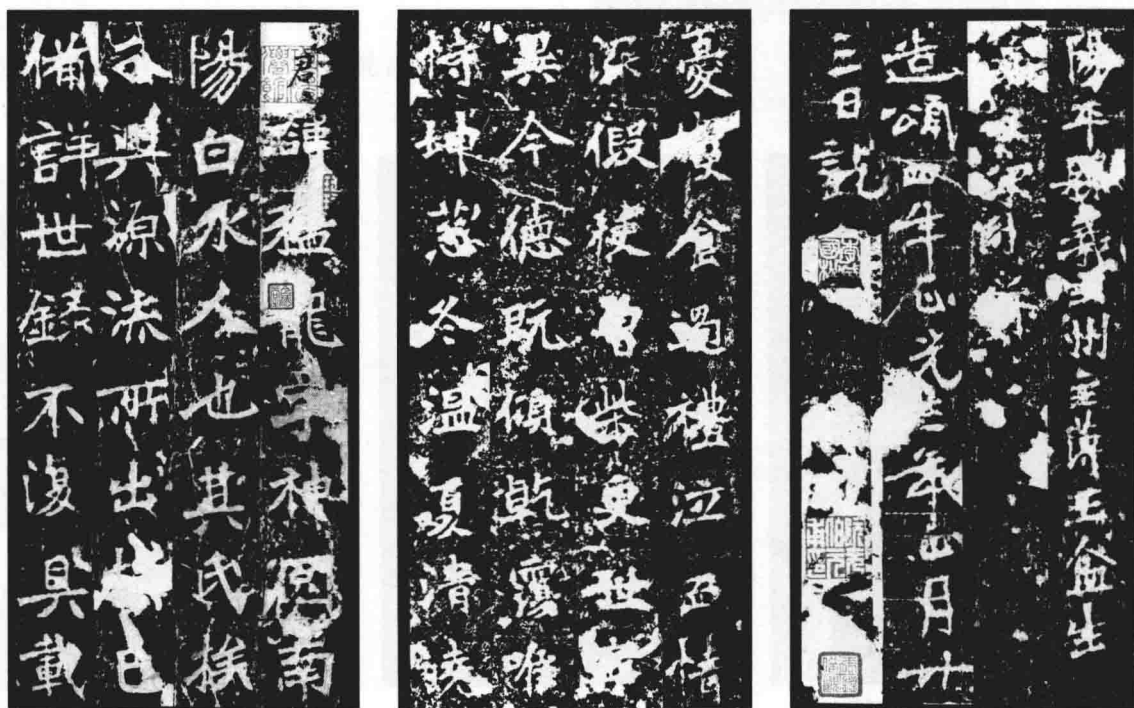 君諱猛龍字神冏南
陽白水人也其氏族
興源流所出已
備詳世錄不復具載
憂寢食過禮泣血情
深假使曾柴更世寧
異今德既傾乾覆唯
恃坤慈冬溫夏清曉
陽平縣義主州主簿王盆生
造頌四年正光三年正月廿
三日訖